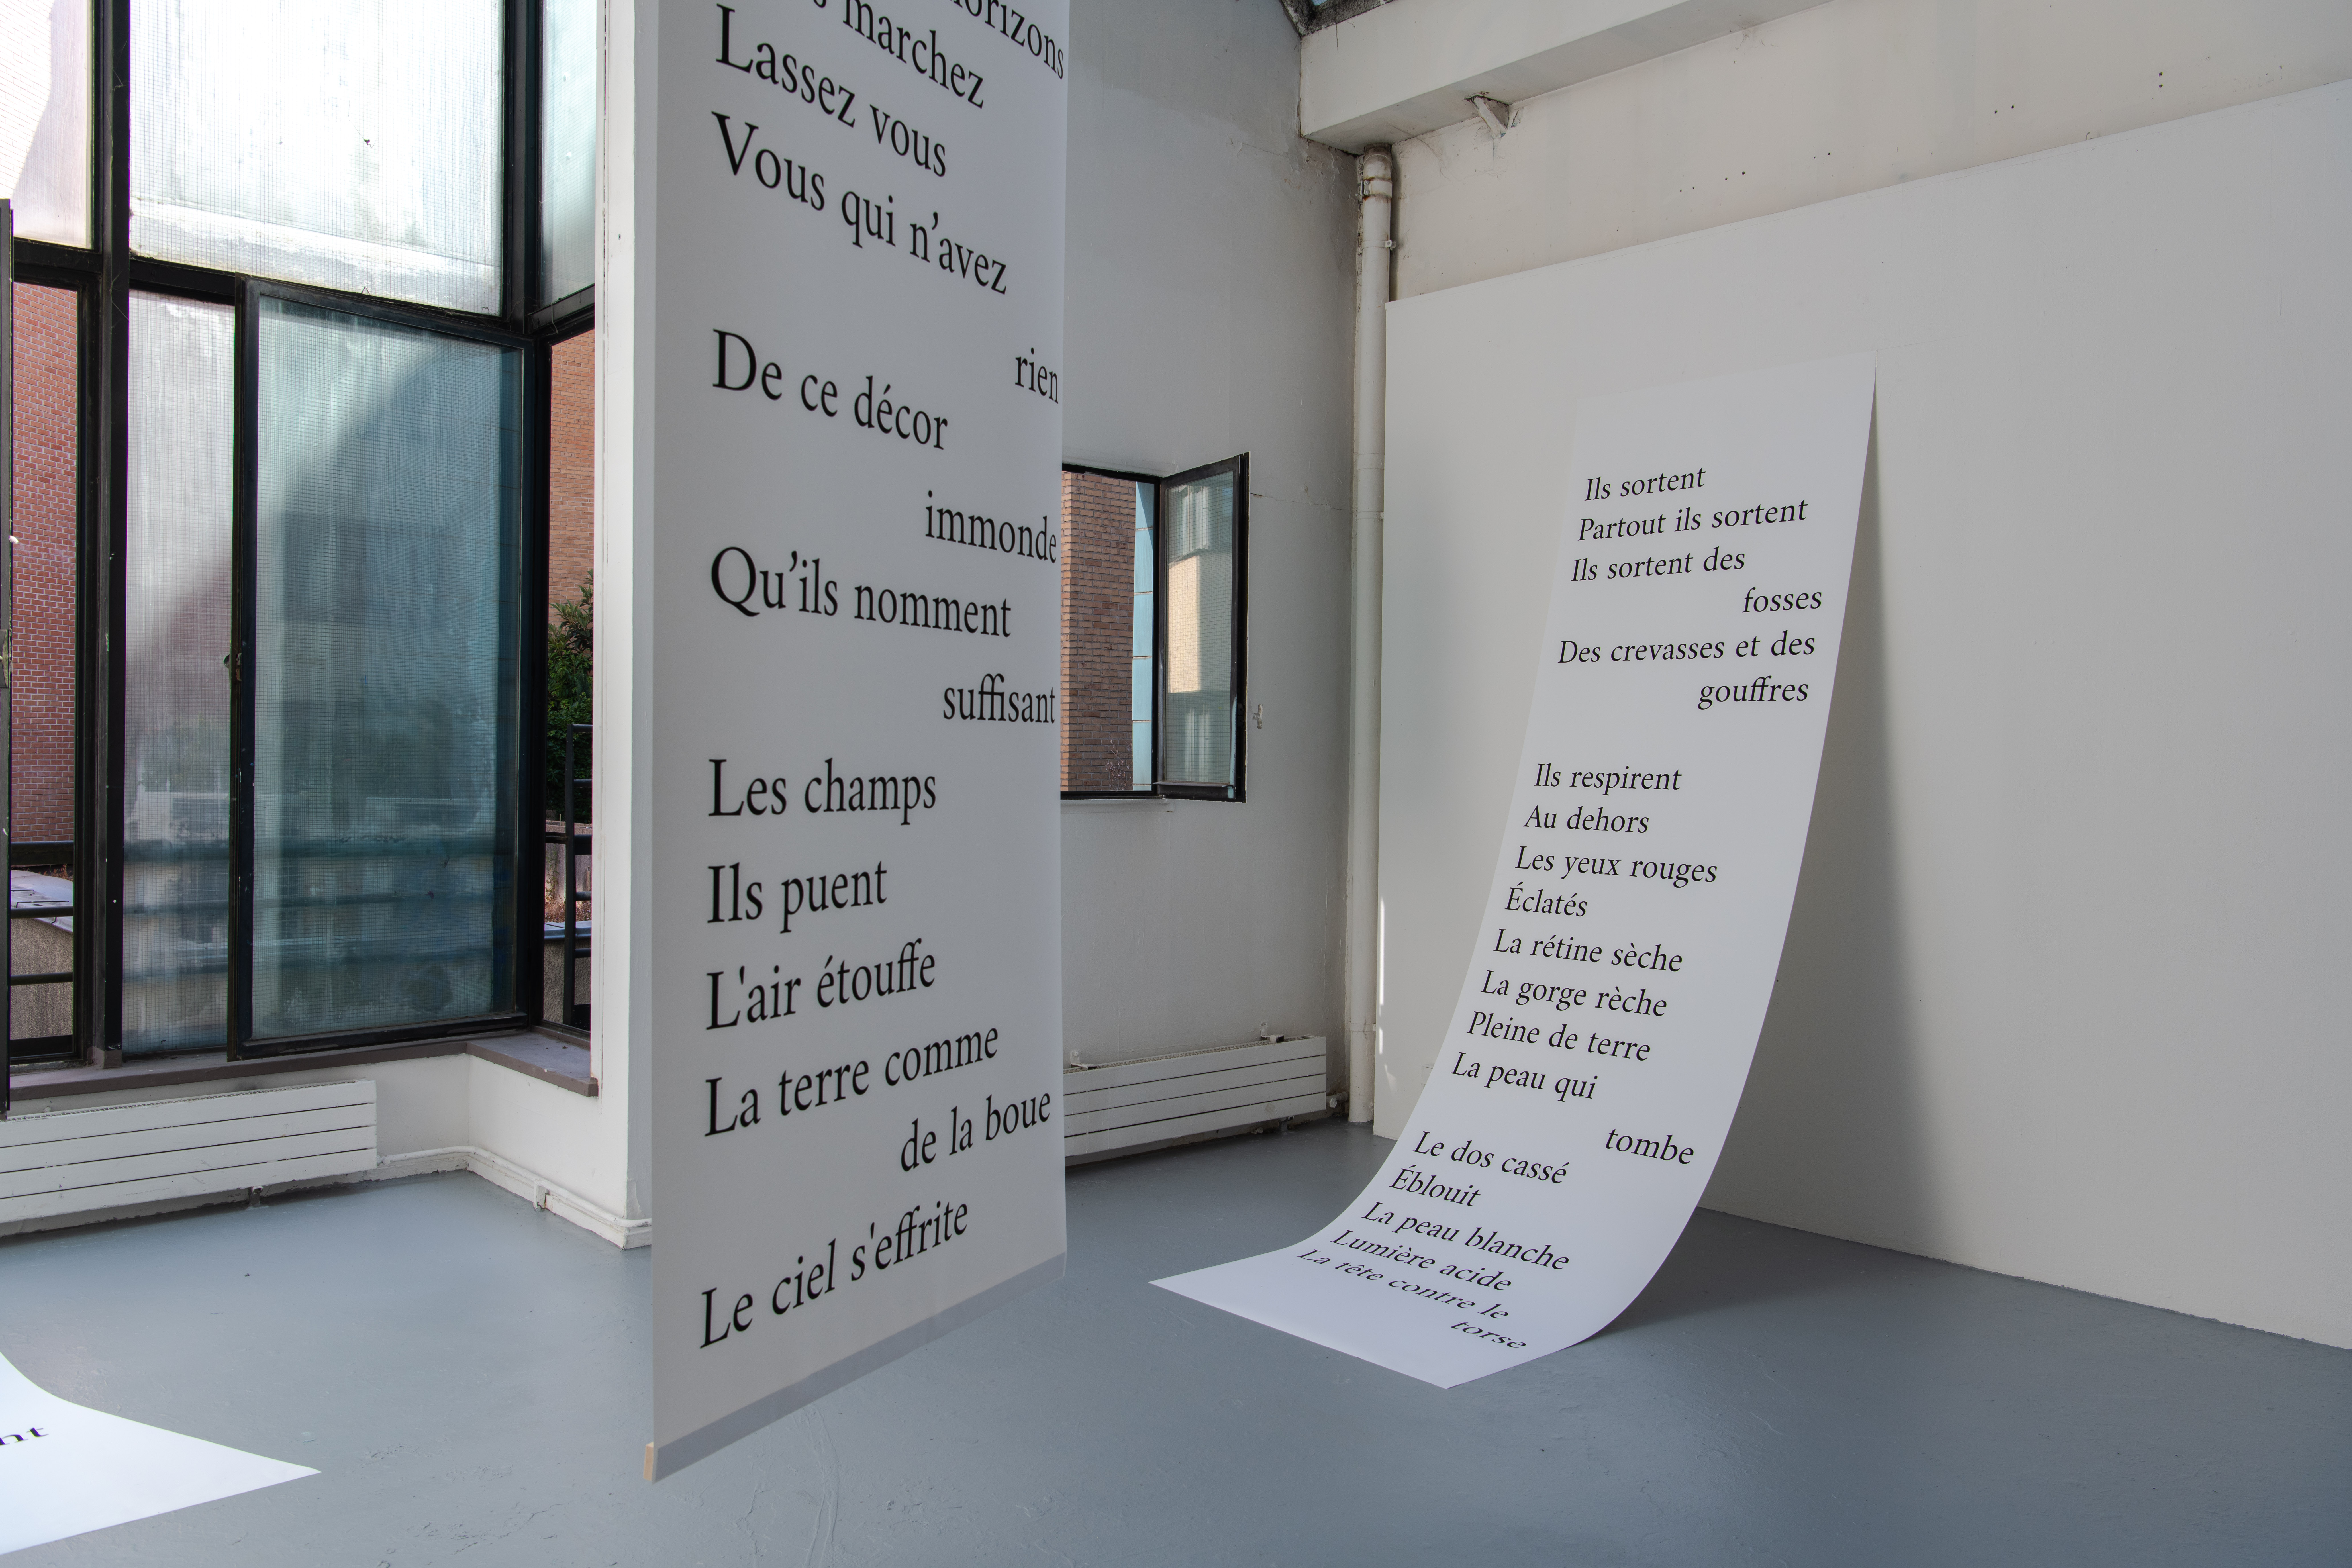 horizons
marchez
Lassez vous
Vous qui n’avez
rien
De ce décor
immonde
Qu’ils nomment
suffisant
Les champs
Ils puent
L'air étouffe
La terre comme
de la boue
Le ciel s'effrite
Ils sortent
Partout ils sortent
Ils sortent des
fosses
Des crevasses et des
gouffres
Ils respirent
Au dehors
Les yeux rouges
Éclatés
La rétine sèche
La gorge rèche
Pleine de terre
La peau qui
tombe
Le dos cassé
Éblouit
La peau blanche
Lumière acide
La tête contre le
torse